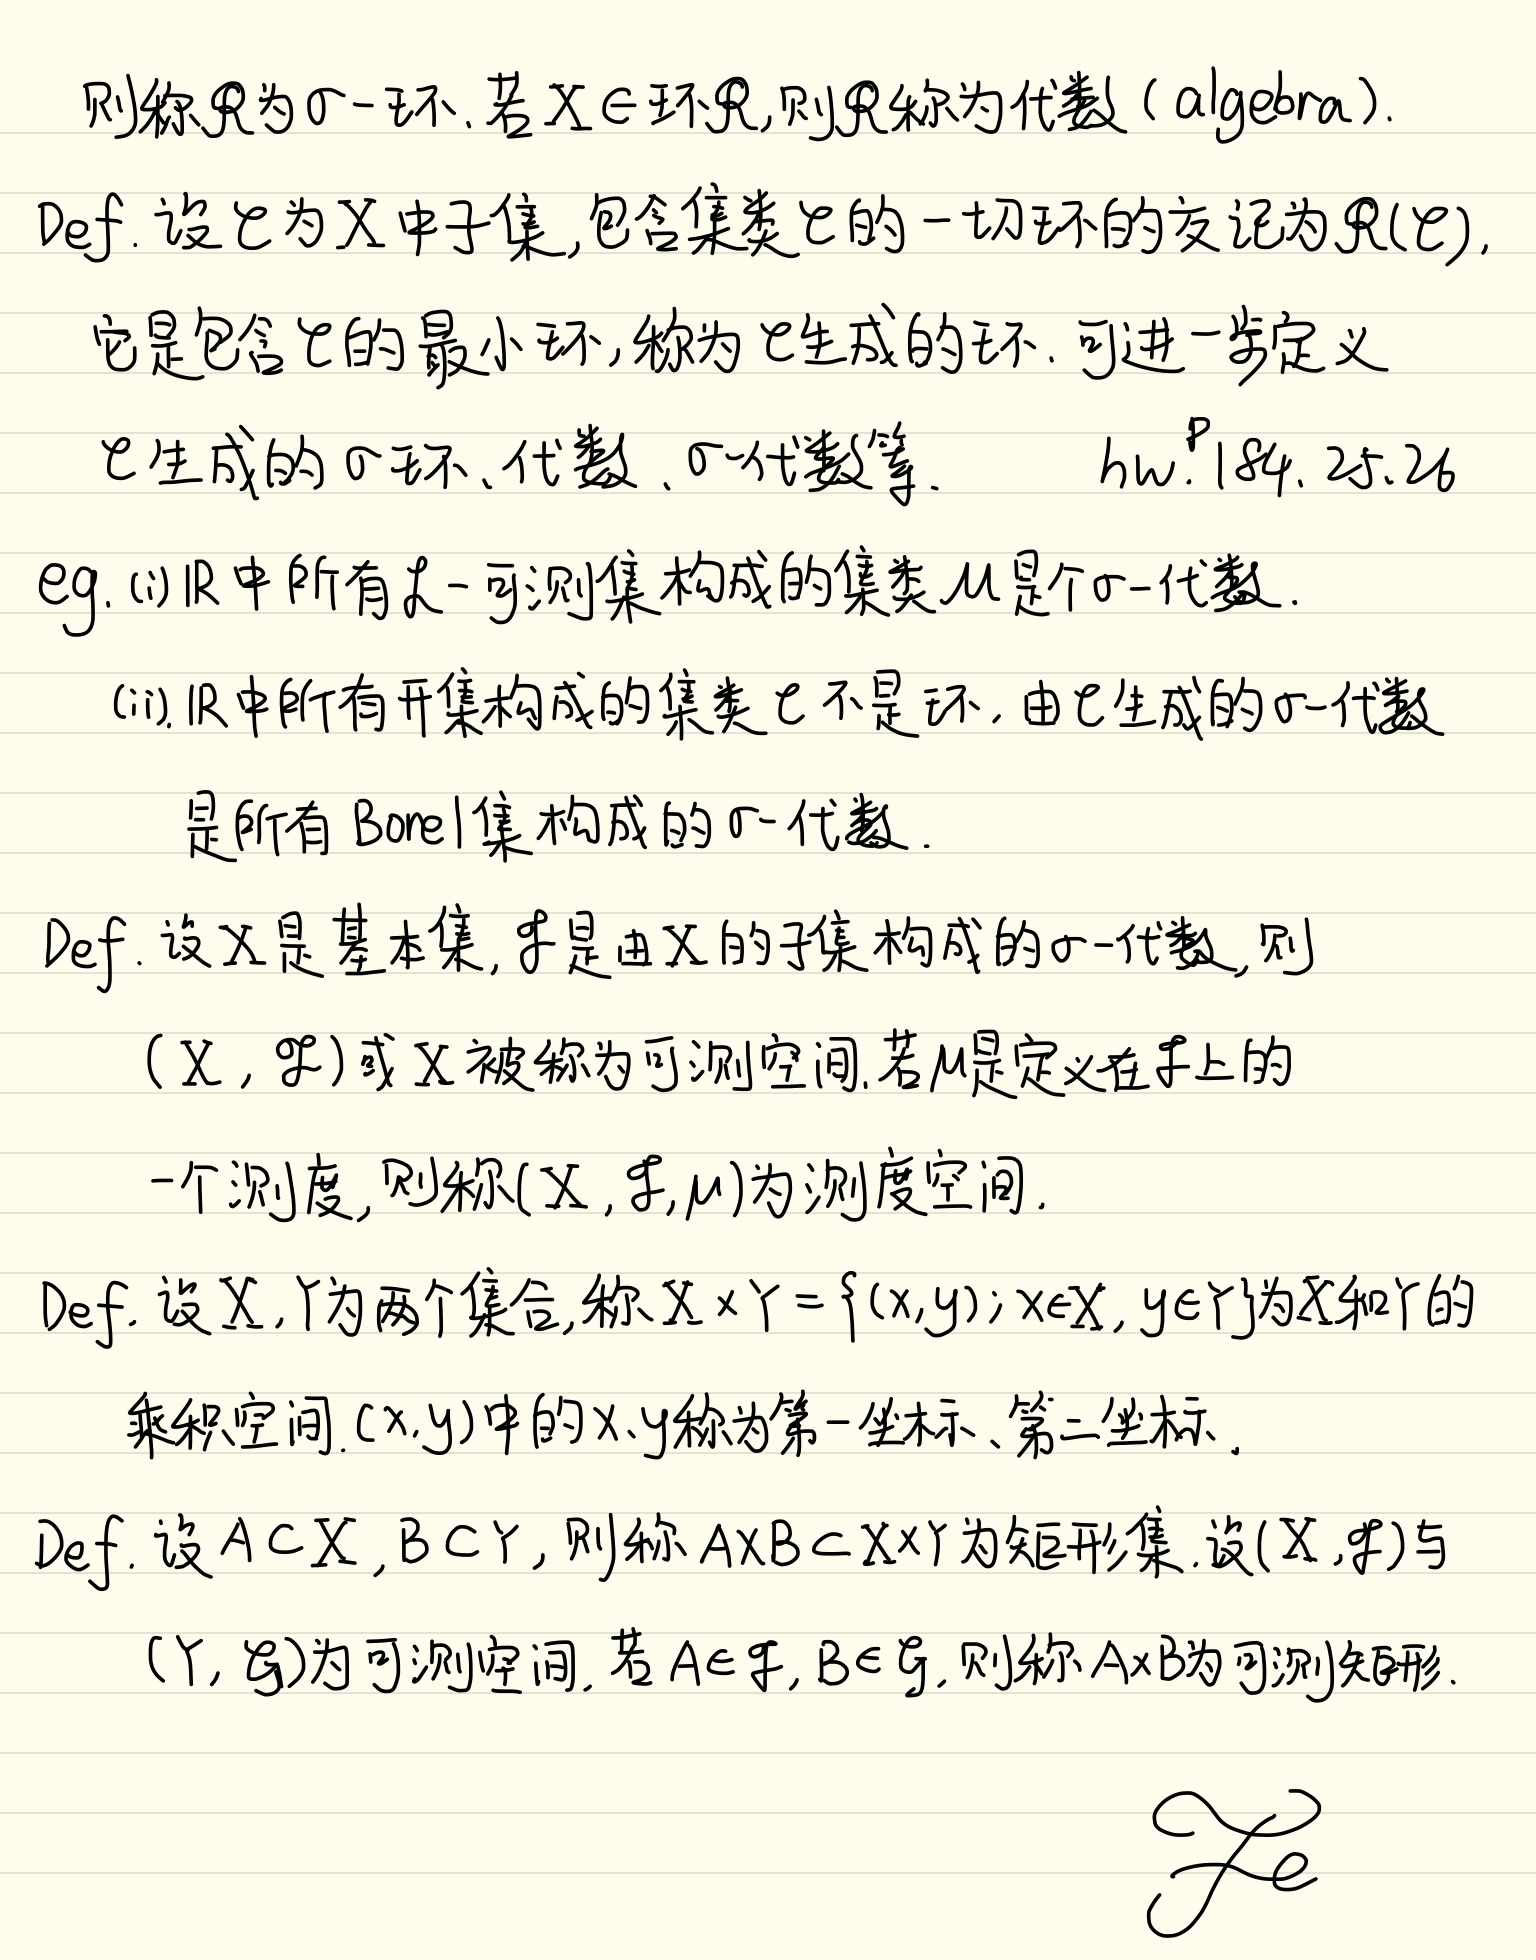 则称ℛ为σ-环.若X∈环ℛ,则ℛ称为代数(algebra).
Def.设𝒞为X中子集,包含集类𝒞的一切环的交记为ℛ(𝒞),
它是包含𝒞的最小环,称为𝒞生成的环.可进一步定义
𝒞生成的σ环、代数、σ-代数等. hw.P184.25.26
eg.(i)ℝ中所有ℒ-可测集构成的集类ℳ是个σ-代数.
(ii).ℝ中所有开集构成的集类𝒞不是环.由𝒞生成的σ-代数
是所有Borel集构成的σ-代数.
Def.设X是基本集,ℱ是由X的子集构成的σ-代数,则
(X,ℱ)或X被称为可测空间.若μ是定义在ℱ上的
一个测度,则称(X,ℱ,μ)为测度空间.
Def.设X,Y为两个集合,称X×Y={(x,y);x∈X,y∈Y}为X和Y的
乘积空间.(x,y)中的x、y称为第一坐标、第二坐标.
Def.设A⊂X,B⊂Y,则称A×B⊂X×Y为矩形集.设(X,ℱ)与
(Y,𝒢)为可测空间.若A∈ℱ,B∈𝒢,则称A×B为可测矩形.